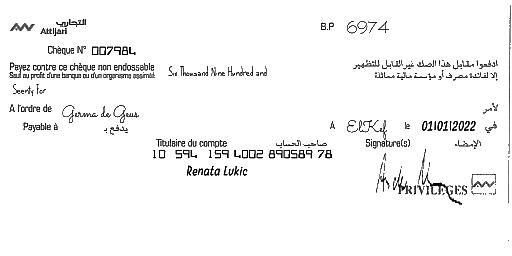 التجاري
Attijari
B.P 6974
Chèque N° 007984
Payez contre ce chèque non endossable
Sauf au profit d'une banque ou d'un organisme assimilé
Six Thousand Nine Hundred and
ادفعوا مقابل هذا الصك غير القابل للتظهير
إلا لفائدة مصرف أو مؤسسة مالية مماثلة
Seenty For
A l'ordre de Germa de Geus لأمر
Payable à يدفع بـ
A El Kef le 01|01|2022 في
Titulaire du compte صاحب الحساب
Signature(s) الإمضاء
10 594 159 4002 890589 78
Renata Lukic
PRIVILEGES